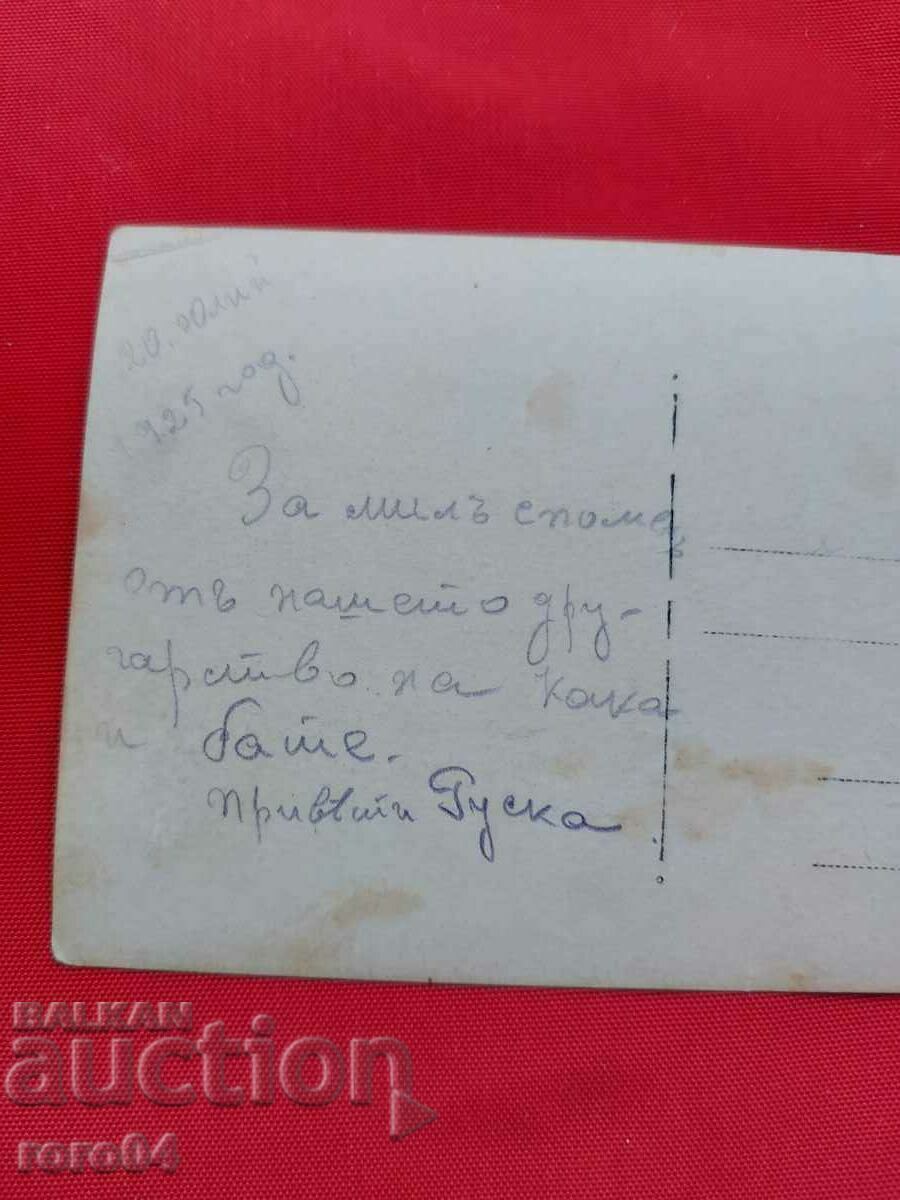 20. Юлий
1925 год.
За милъ спомен
отъ нашето дру-
гарство на Кака
и Бате.
Привѣти Руска
BALKAN
auction
roro04